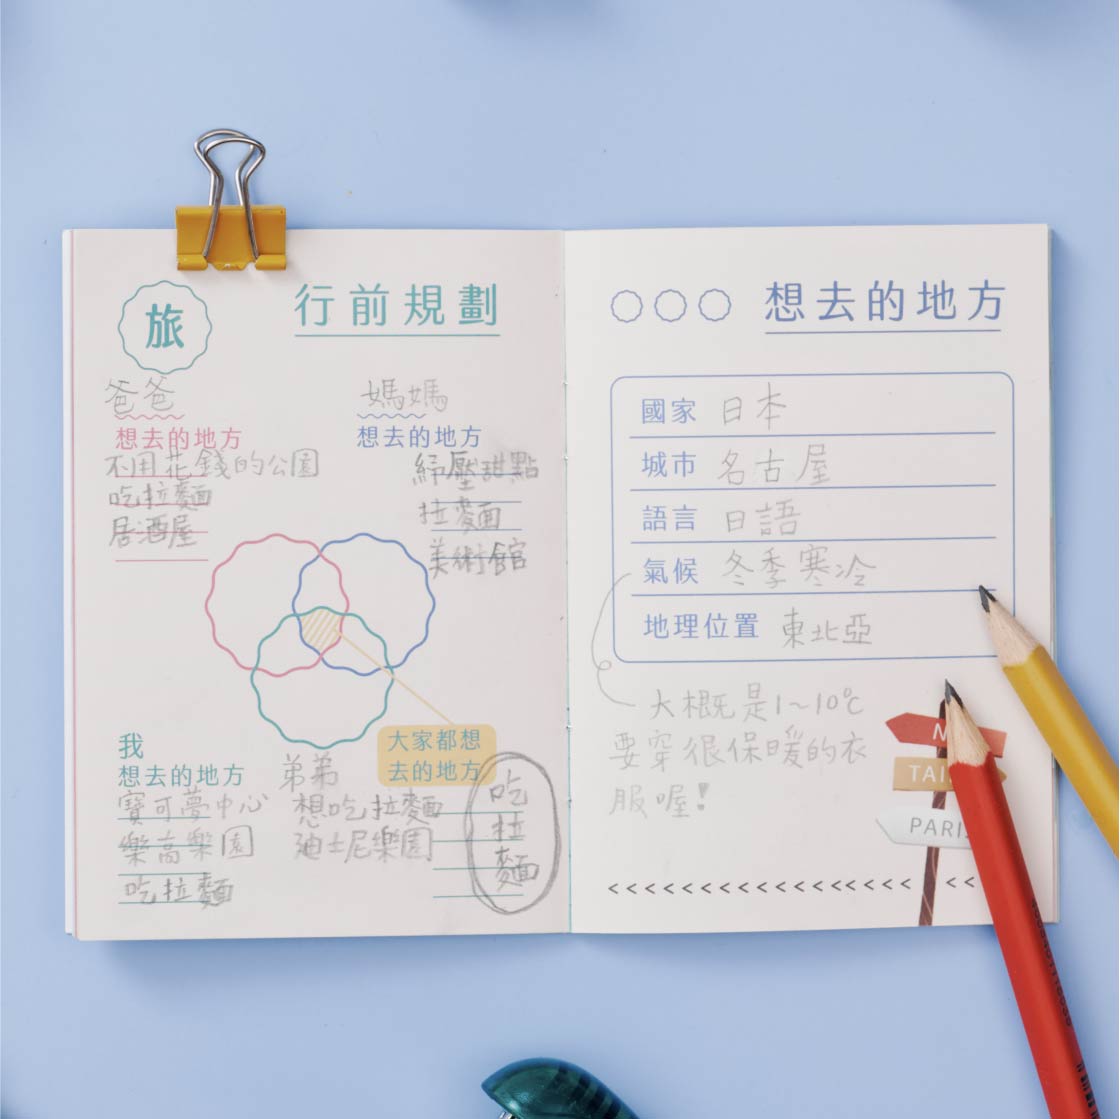 旅
行前規劃
爸爸
想去的地方
不用花錢的公園
吃拉麵
居酒屋
媽媽
想去的地方
紓壓甜點
拉麵
美術館
我
想去的地方
寶可夢中心
樂高樂園
吃拉麵
弟弟
想吃拉麵
迪士尼樂園
大家都想
去的地方
吃
拉
麵
想去的地方
國家 日本
城市 名古屋
語言 日語
氣候 冬季寒冷
地理位置 東北亞
大概是1~10℃
要穿很保暖的衣
服喔!
PARIS
<<<<<<<<<<<<<<<<<< <<